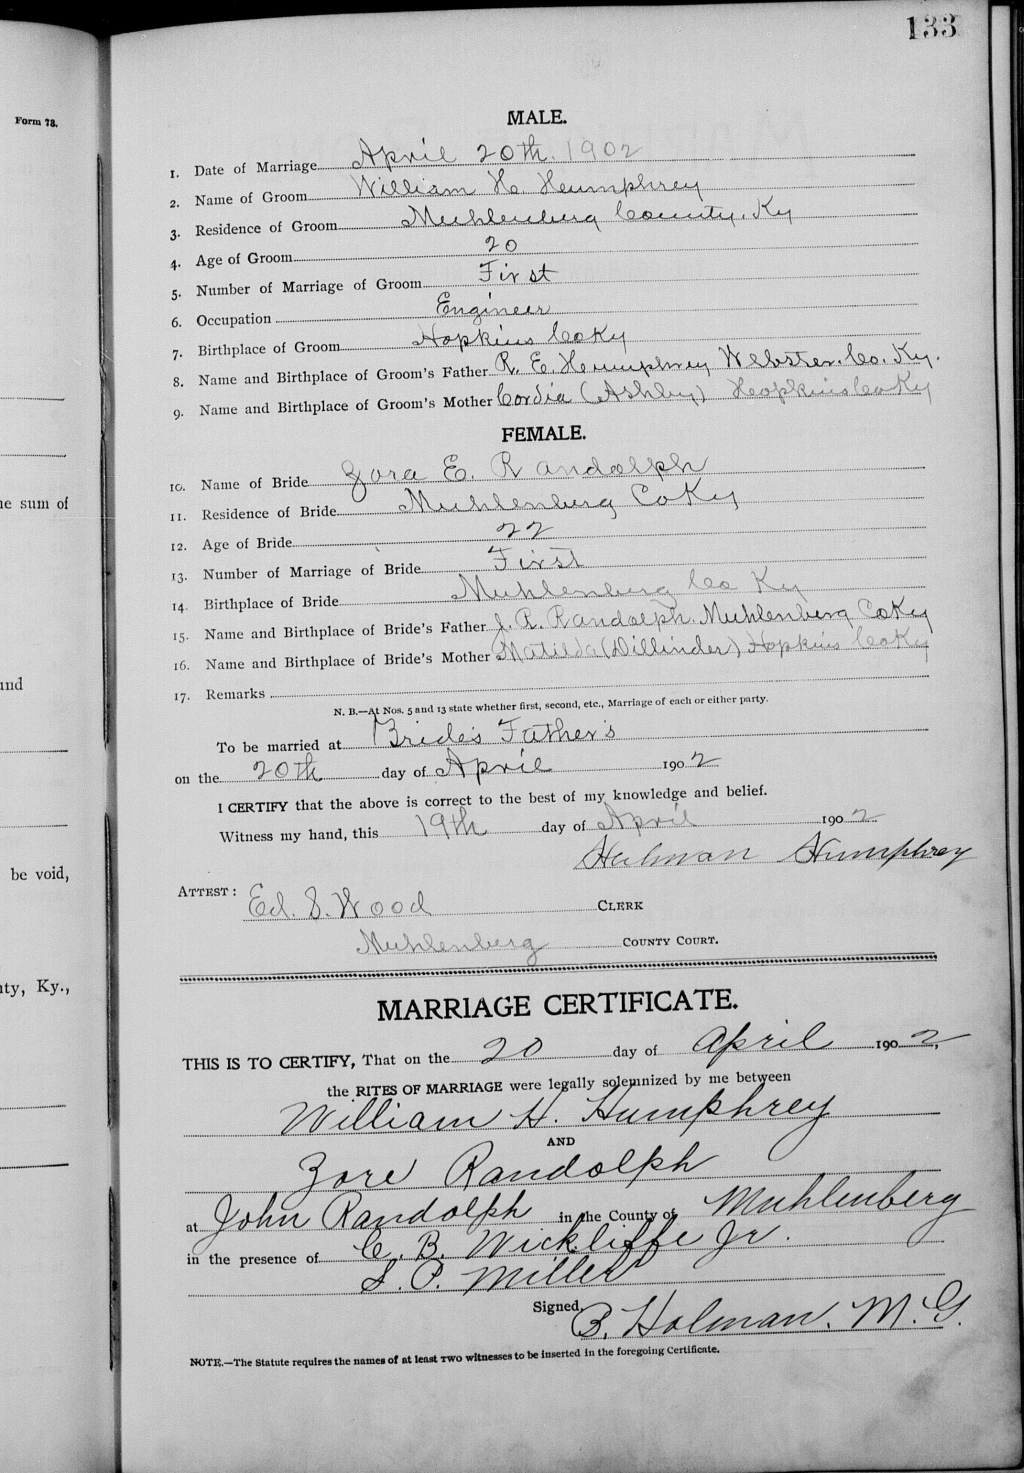 133
Form 73.
MALE.
1. Date of Marriage April 20th. 1902
2. Name of Groom William H. Humphrey
3. Residence of Groom Muhlenberg County, Ky
4. Age of Groom 20
5. Number of Marriage of Groom First
6. Occupation Engineer
7. Birthplace of Groom Hopkins Co Ky
8. Name and Birthplace of Groom's Father R. E. Humphrey Webster. Co. Ky.
9. Name and Birthplace of Groom's Mother Cordia (Ashby) Hopkins Co Ky
FEMALE.
10. Name of Bride Zora E. Randolph
11. Residence of Bride Muhlenberg Co Ky
12. Age of Bride 22
13. Number of Marriage of Bride First
14. Birthplace of Bride Muhlenberg Co Ky
15. Name and Birthplace of Bride's Father J. R. Randolph. Muhlenberg Co Ky
16. Name and Birthplace of Bride's Mother Matilda (Dillinder) Hopkins Co Ky
17. Remarks
N. B.—At Nos. 5 and 13 state whether first, second, etc., Marriage of each or either party.
To be married at Bride's Father's
on the 20th day of April 1902
I CERTIFY that the above is correct to the best of my knowledge and belief.
Witness my hand, this 19th day of April 1902
Humphrey
ATTEST: Ed. S. Wood CLERK
Muhlenberg COUNTY COURT.
MARRIAGE CERTIFICATE.
THIS IS TO CERTIFY, That on the 20 day of April 1902,
the RITES OF MARRIAGE were legally solemnized by me between
William H. Humphrey
AND
Zore Randolph
at John Randolph in the County of Muhlenberg
in the presence of C. B. Wickliffe Jr.
S. P. Miller
Signed, B. Holman. M. G.
NOTE.—The Statute requires the names of at least TWO witnesses to be inserted in the foregoing Certificate.
he sum of
und
be void,
nty, Ky.,